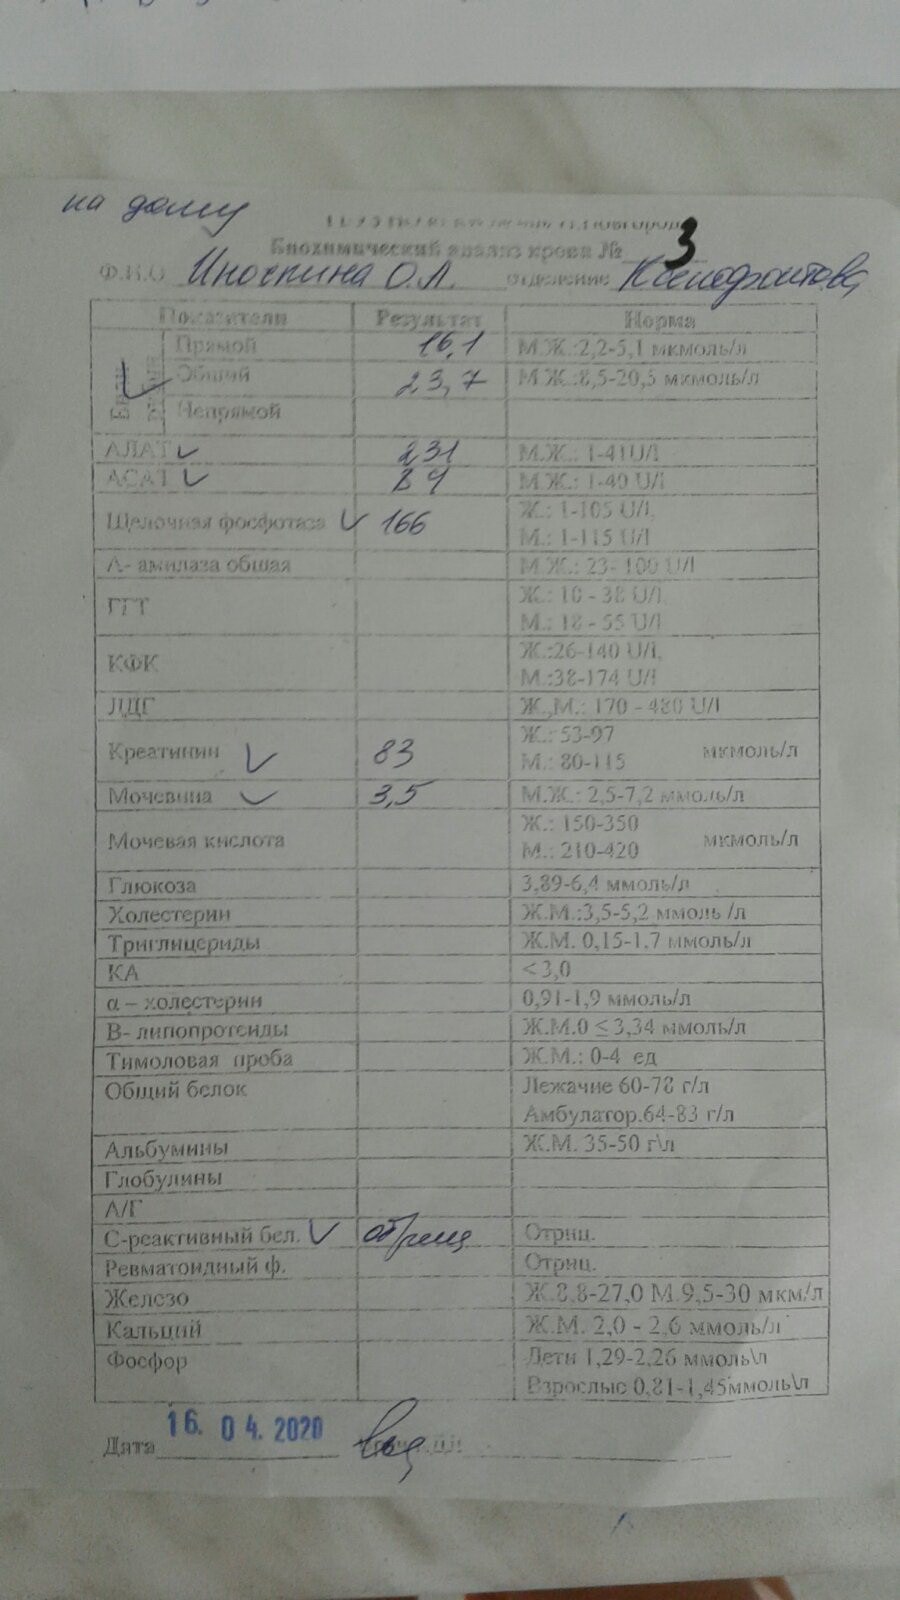 на дому
Биохимический анализ крови № 3
Ф.И.О. Иноспина О.Л. отделение
Показатели Результат Норма
Прямой 16,1 М.Ж.:2,2-5,1 мкмоль/л
Общий 23,7 М.Ж.:8,5-20,5 мкмоль/л
Непрямой
АЛАТ 231 М.Ж.: 1-41U/l
АСАТ М.Ж.: 1-40 U/l
Щелочная фосфотаза 166 Ж.: 1-105 U/l,
М.: 1-115 U/l
Λ- амилаза общая М.Ж.: 23- 100 U/l
ГГТ Ж.: 10 - 38 U/l,
М.: 18 - 55 U/l
КФК Ж.:26-140 U/l,
М.:38-174 U/l
ЛДГ Ж.,М.: 170 - 480 U/l
Креатинин 83 Ж.: 53-97 мкмоль/л
М.: 80-115
Мочевина 3,5 М.Ж.: 2,5-7,2 ммоль/л
Мочевая кислота Ж.: 150-350 мкмоль/л
М.: 210-420
Глюкоза 3,89-6,4 ммоль/л
Холестерин Ж.М.:3,5-5,2 ммоль /л
Триглицериды Ж.М. 0,15-1,7 ммоль/л
КА < 3,0
α – холестерин 0,91-1,9 ммоль/л
В- липопротеиды Ж.М.0 ≤ 3,34 ммоль/л
Тимоловая проба Ж.М.: 0-4 ед
Общий белок Лежачие 60-78 г/л
Амбулатор.64-83 г/л
Альбумины Ж.М. 35-50 г\л
Глобулины
А/Г
С-реактивный бел. отриц Отриц.
Ревматоидный ф. Отриц.
Железо Ж.8,8-27,0 М.9,5-30 мкм/л
Кальций Ж.М. 2,0 - 2,6 ммоль/л
Фосфор Дети 1,29-2,26 ммоль\л
Взрослые 0,81-1,45ммоль\л
Дата 16. 04. 2020